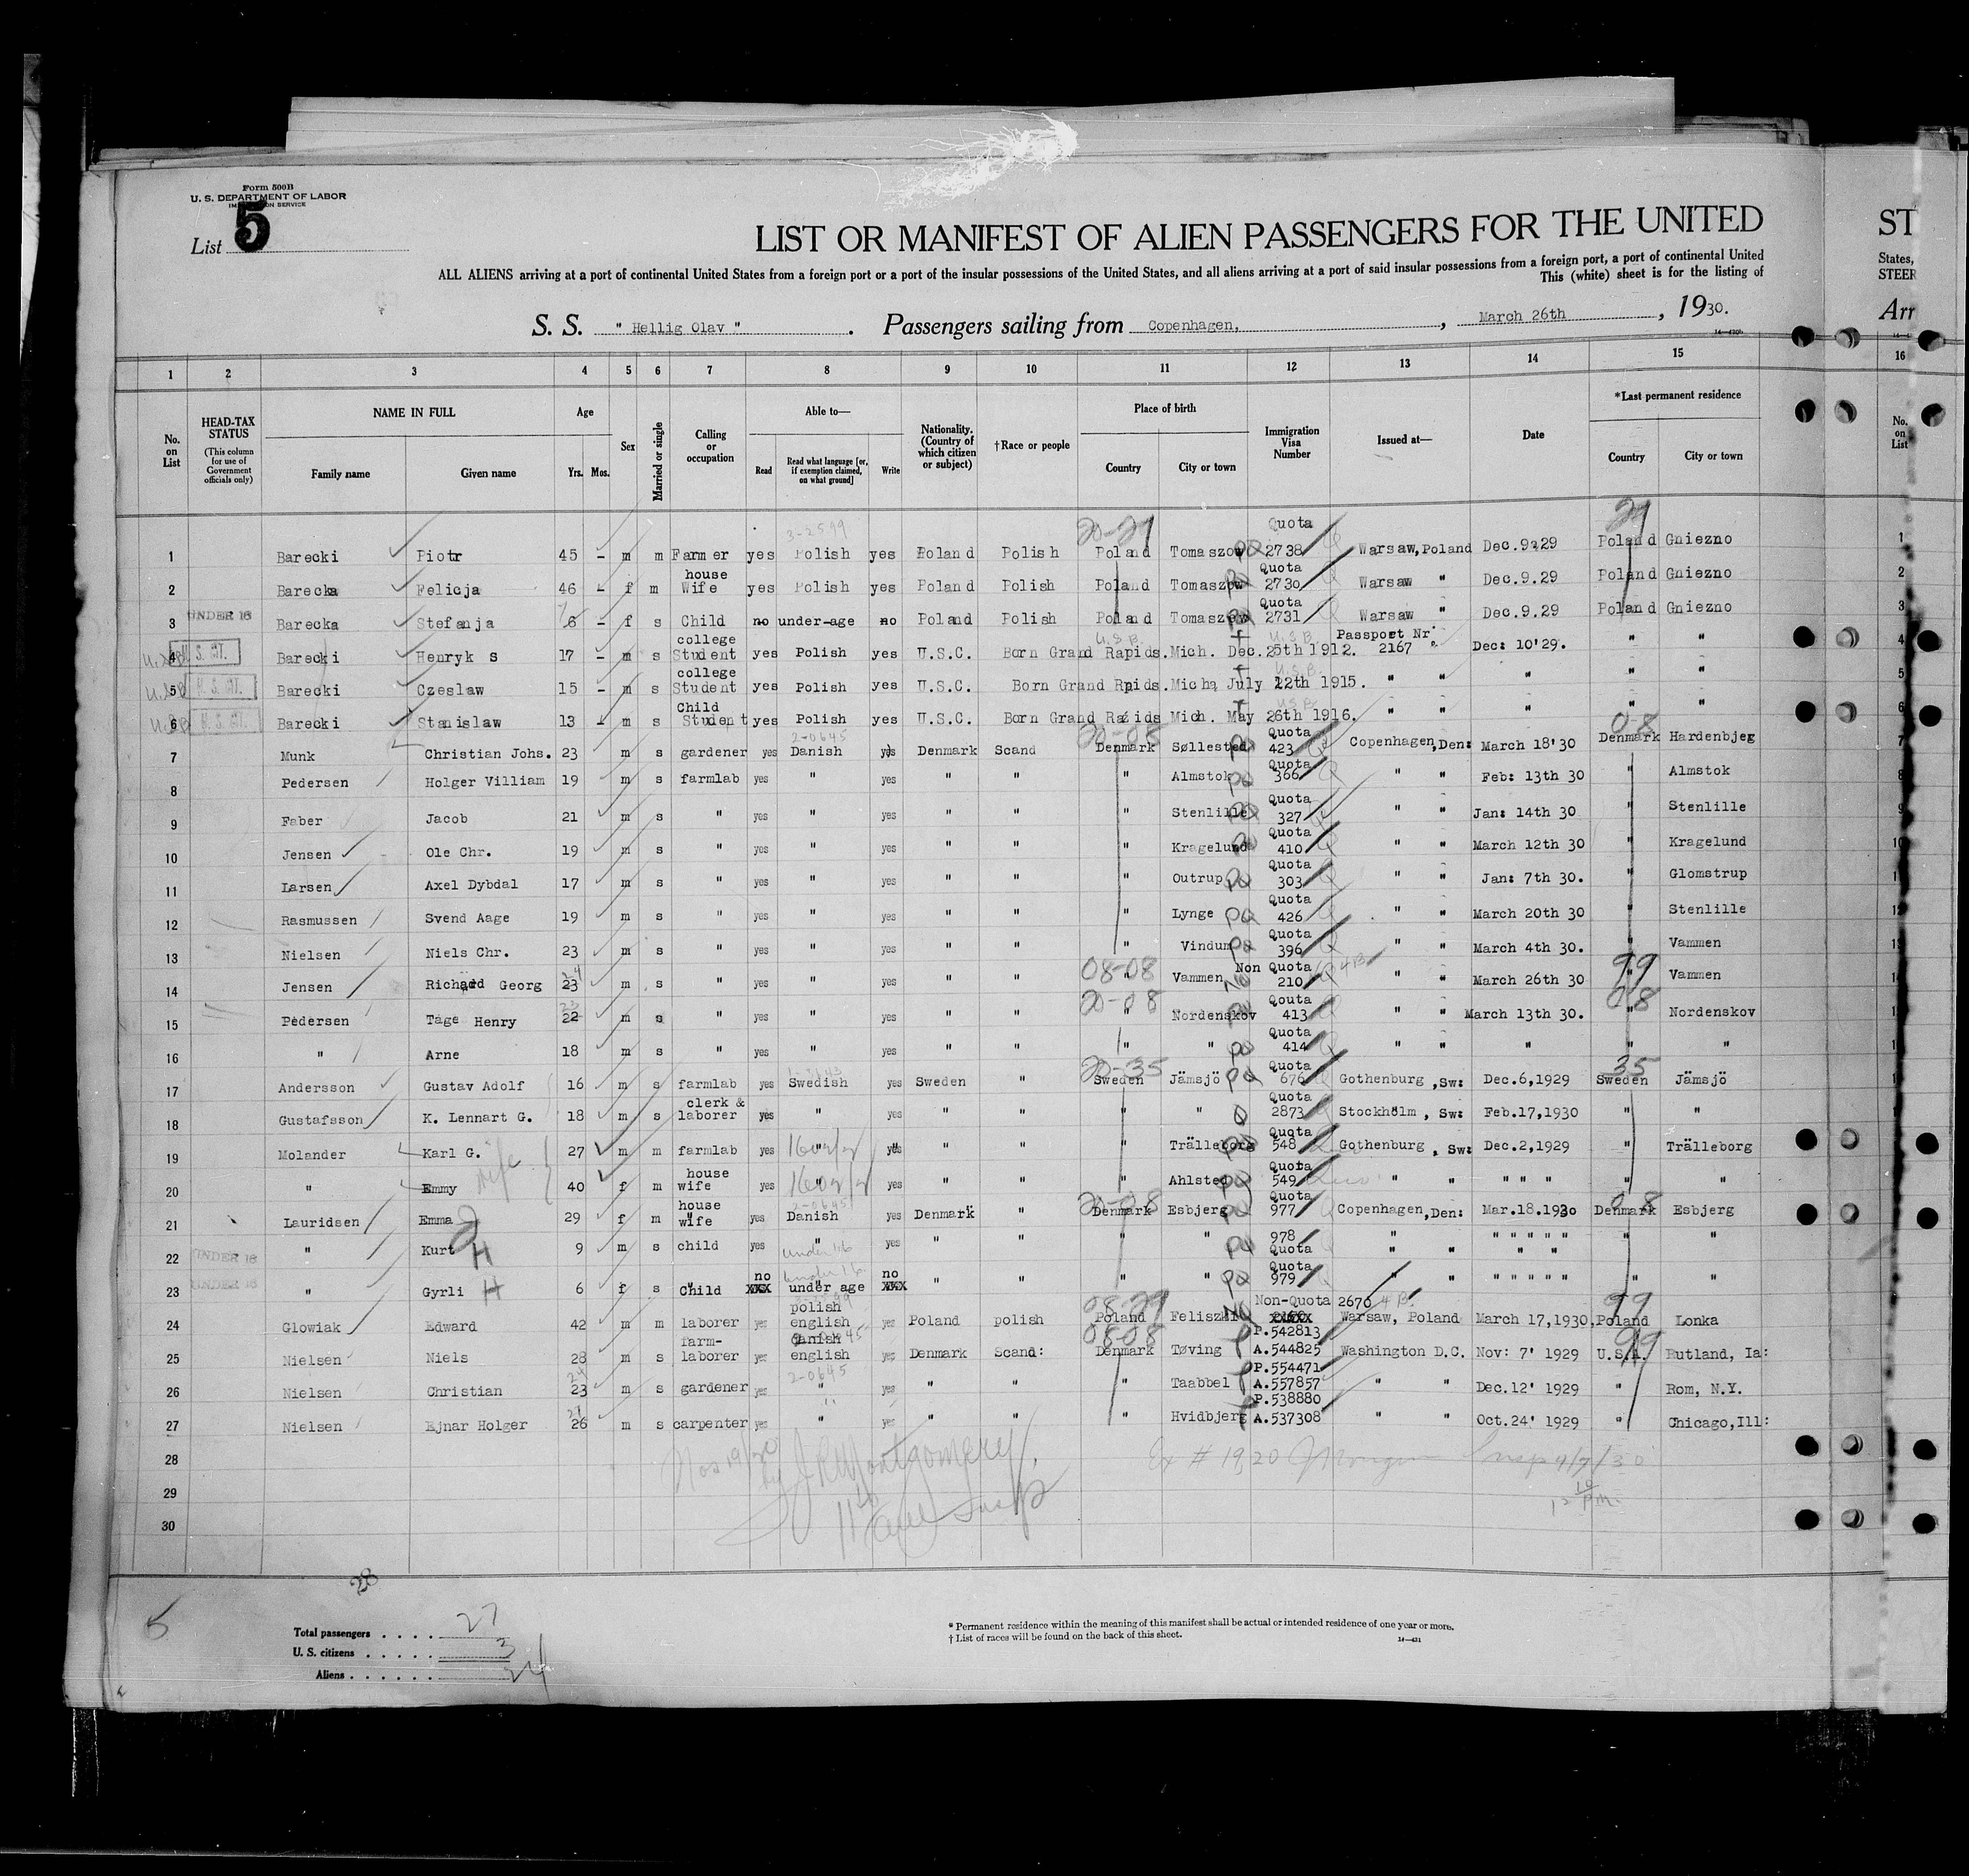 Form 500B
U. S. DEPARTMENT OF LABOR
SERVICE
List 5
LIST OR MANIFEST OF ALIEN PASSENGERS FOR THE UNITED
ST
ALL ALIENS arriving at a port of continental United States from a foreign port or a port of the insular possessions of the United States, and all aliens arriving at a port of said insular possessions from a foreign port, a port of continental United
States,
This (white) sheet is for the listing of
STEER
S. S. " Hellig Olav " . Passengers sailing from Copenhagen, , March 26th , 1930.
Arr
1 2 3 4 5 6 7 8 9 10 11 12 13 14 15 16
No. on List
HEAD-TAX STATUS
(This column for use of Government officials only)
NAME IN FULL
Family name Given name
Age
Yrs. Mos.
Sex
Married or single
Calling or occupation
Able to—
Read Read what language [or, if exemption claimed, on what ground] Write
Nationality. (Country of which citizen or subject)
†Race or people
Place of birth
Country City or town
Immigration Visa Number
Issued at—
Date
*Last permanent residence
Country City or town
No. on List
20-29 Quota 29
1 Barecki Piotr 45 – m m Farmer yes Polish yes Poland Polish Poland Tomaszow 2738 Warsaw, Poland Dec.9.29 Poland Gniezno 1
house Quota
2 Barecka Felicja 46 – f m Wife yes Polish yes Poland Polish Poland Tomaszow 2730 Warsaw " Dec.9.29 Poland Gniezno 2
UNDER 16 Quota
3 Barecka Stefanja 6 – f s Child no under-age no Poland Polish Poland Tomaszow 2731 Warsaw " Dec.9.29 Poland Gniezno 3
college U.S.B. U.S.B. Passport Nr.
4 Barecki Henryk s 17 – m s Student yes Polish yes U.S.C. Born Grand Rapids.Mich. Dec.25th 1912. 2167 Dec: 10'29. " " 4
college U.S.B.
5 Barecki Czeslaw 15 – m s Student yes Polish yes U.S.C. Born Grand Rpids.Mich, July 12th 1915. " " " " " 5
Child
6 Barecki Stanislaw 13 – m s Student yes Polish yes U.S.C. Born Grand Rapids Mich. May 26th 1916. " " " " " 6
2-0645 20-08 Quota 08
7 Munk Christian Johs. 23 m s gardener yes Danish yes Denmark Scand Denmark Søllested 423 Copenhagen,Den: March 18'30 Denmark Hardenbjeg 7
Quota
8 Pedersen Holger Villiam 19 m s farmlab yes " yes " " " Almstok 366 " " Feb: 13th 30 " Almstok 8
Quota
9 Faber Jacob 21 m s " yes " yes " " " Stenlille 327 " " Jan: 14th 30 " Stenlille 9
Quota
10 Jensen Ole Chr. 19 m s " yes " yes " " " Kragelund 410 " " March 12th 30 " Kragelund 10
Quota
11 Larsen Axel Dybdal 17 m s " yes " yes " " " Outrup 303 " " Jan: 7th 30. " Glomstrup
Quota
12 Rasmussen Svend Aage 19 m s " yes " yes " " " Lynge 426 " " March 20th 30 " Stenlille
Quota
13 Nielsen Niels Chr. 23 m s " yes " yes " " " Vindum 396 " " March 4th 30. " Vammen
24 08-08 Non Quota 4B 99
14 Jensen Richard Georg 23 m s " yes " yes " " " Vammen 210 " " March 26th 30 " Vammen
23 20-08 Qouta 08
15 Pedersen Tage Henry 22 m s " yes " yes " " " Nordenskov 413 " " March 13th 30. " Nordenskov
Quota
16 " Arne 18 m s " yes " yes " " " " 414 " " " " "
20-35 Quota 35
17 Andersson Gustav Adolf 16 m s farmlab yes Swedish yes Sweden " Sweden Jämsjö 676 Gothenburg ,Sw: Dec.6,1929 Sweden Jämsjö
clerk & Quota
18 Gustafsson K. Lennart G. 18 m s laborer yes " yes " " " " 2873 Stockhölm , Sw: Feb.17,1930 " "
Quota
19 Molander Karl G. 27 m m farmlab yes " yes " " " Trälleborg 548 Gothenburg , Sw: Dec.2,1929 " Trälleborg
wife house Quota
20 " Emmy 40 f m wife yes " yes " " " Ahlsted 549 " " " " " " "
house 2-0645 20-08 Quota 08
21 Lauridsen Emma 29 f m wife yes Danish yes Denmark " Denmark Esbjerg 977 Copenhagen,Den: Mar.18.1930 Denmark Esbjerg
UNDER 16 978
22 " Kurt H 9 m s child yes " under 16 yes " " " " Quota " " " " " "
UNDER 16 no under 16 no Quota
23 " Gyrli H 6 f s Child XXX under age XXX " " " " 979 " " " " " " " "
polish 08-29 Non-Quota 2670 4 B. 99
24 Glowiak Edward 42 m m laborer yes english yes Poland polish Poland Warsaw, Poland March 17,1930, Poland Lonka
farm- danish 08-08 P.542813 99
25 Nielsen Niels 28 m s laborer yes english yes Denmark Scand: Denmark Tøving A.544825 Washington D.C. Nov: 7' 1929 U.S.A. Rutland, Ia:
24 2-0645 P.554471
26 Nielsen Christian 23 m s gardener yes " yes " " " Taabbel A.557857 " " Dec.12' 1929 " Rom, N.Y.
27 P.538880
27 Nielsen Ejnar Holger 26 m s carpenter yes " yes " " " Hvidbjerg A.537308 " " Oct.24' 1929 " Chicago,Ill:
28 Nos 19/20 by J.R. Montgomery Ex # 19,20 Insp 4/7/30
29
30
28
5
Total passengers . . . . 27
U. S. citizens . . . . . . 3
Aliens . . . . . . 24
* Permanent residence within the meaning of this manifest shall be actual or intended residence of one year or more.
† List of races will be found on the back of this sheet.
14—431